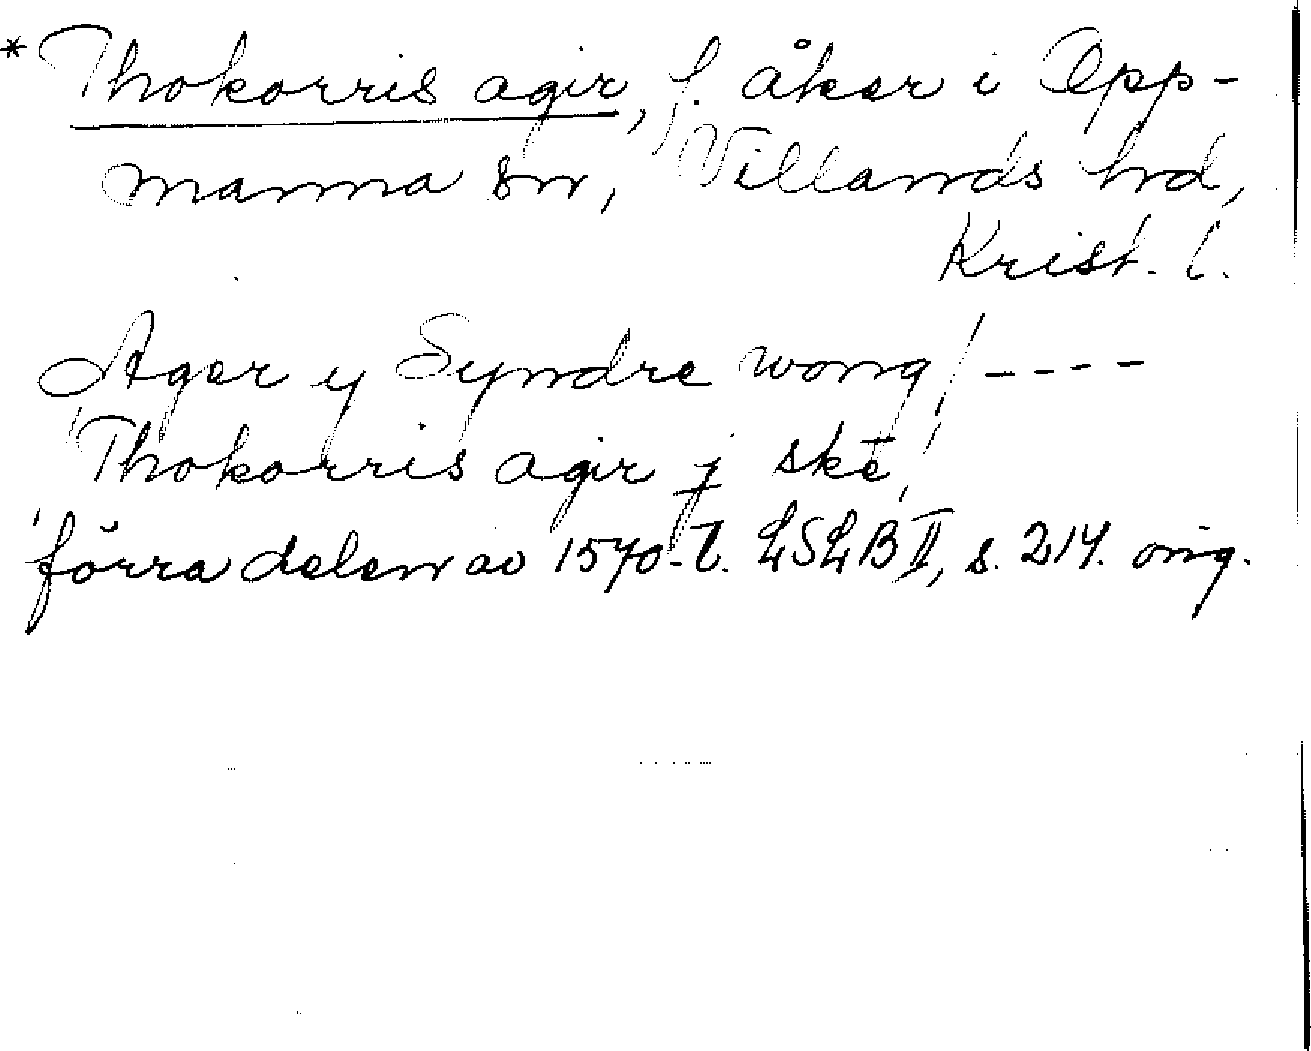 * Thokorris agir, f. åker i Opp-
manna sn, Villands hd,
Krist. l.
Ager y Syndre wong / ----
Thokorris agir j skē,
förra delen av 1570-t. LSLB II, s. 214. orig.